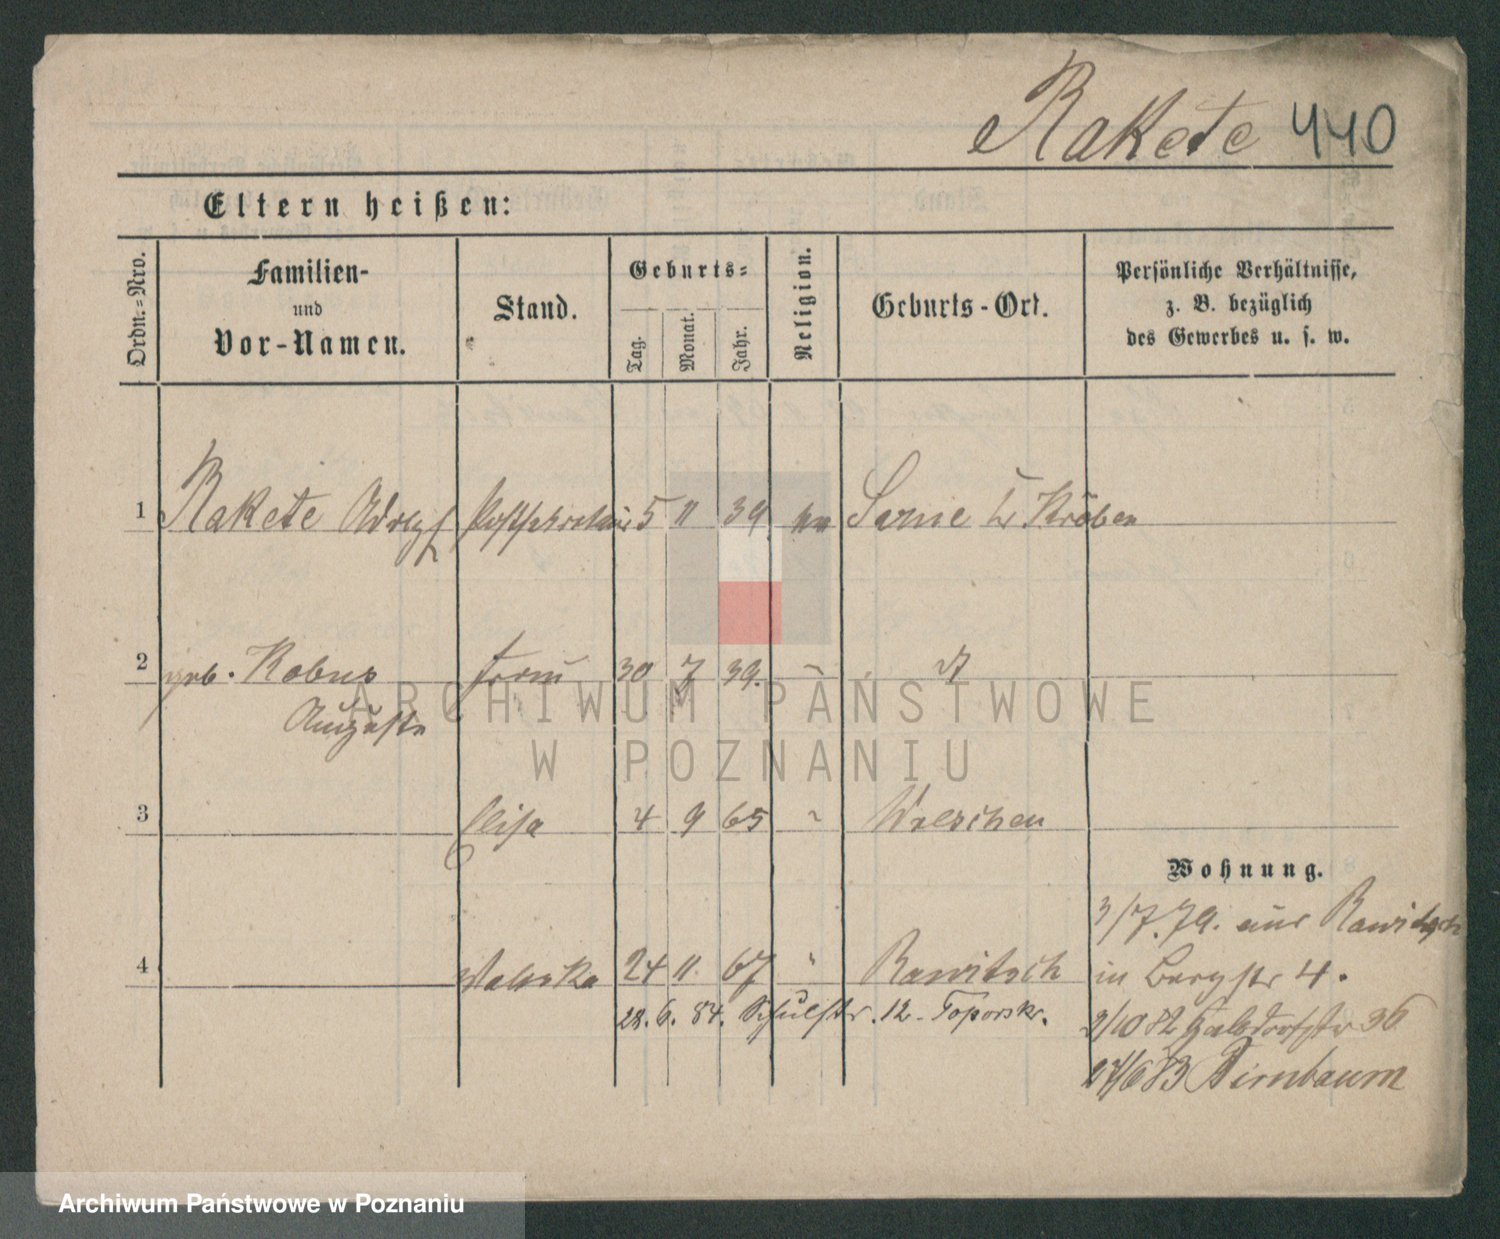 Rakete 440
Eltern heißen:
Ordn.=Nro.
Familien-
und
Vor-Namen.
Stand.
Geburts=
Tag.
Monat.
Jahr.
Religion.
Geburts-Ort.
Persönliche Verhältnisse,
z. B. bezüglich
des Gewerbes u. s. w.
1 Rakete Adolf 5 11 39 Sarne Kr Kröben
2 geb. Kabus Frau 30 7 39.
Auguste
ARCHIWUM PAŃSTWOWE
W POZNANIU
3 Elisa 4 9 65 Wreschen
Wohnung.
3/7.79. aus Rawitsch
4 Valeska 24 11 67 " Rawitsch in Bergstr 4.
28. 6. 84. Schulstr. 12 - Toporski.
2/10 82 Halbdorfstr 36
27/6 83 Birnbaum
Archiwum Państwowe w Poznaniu